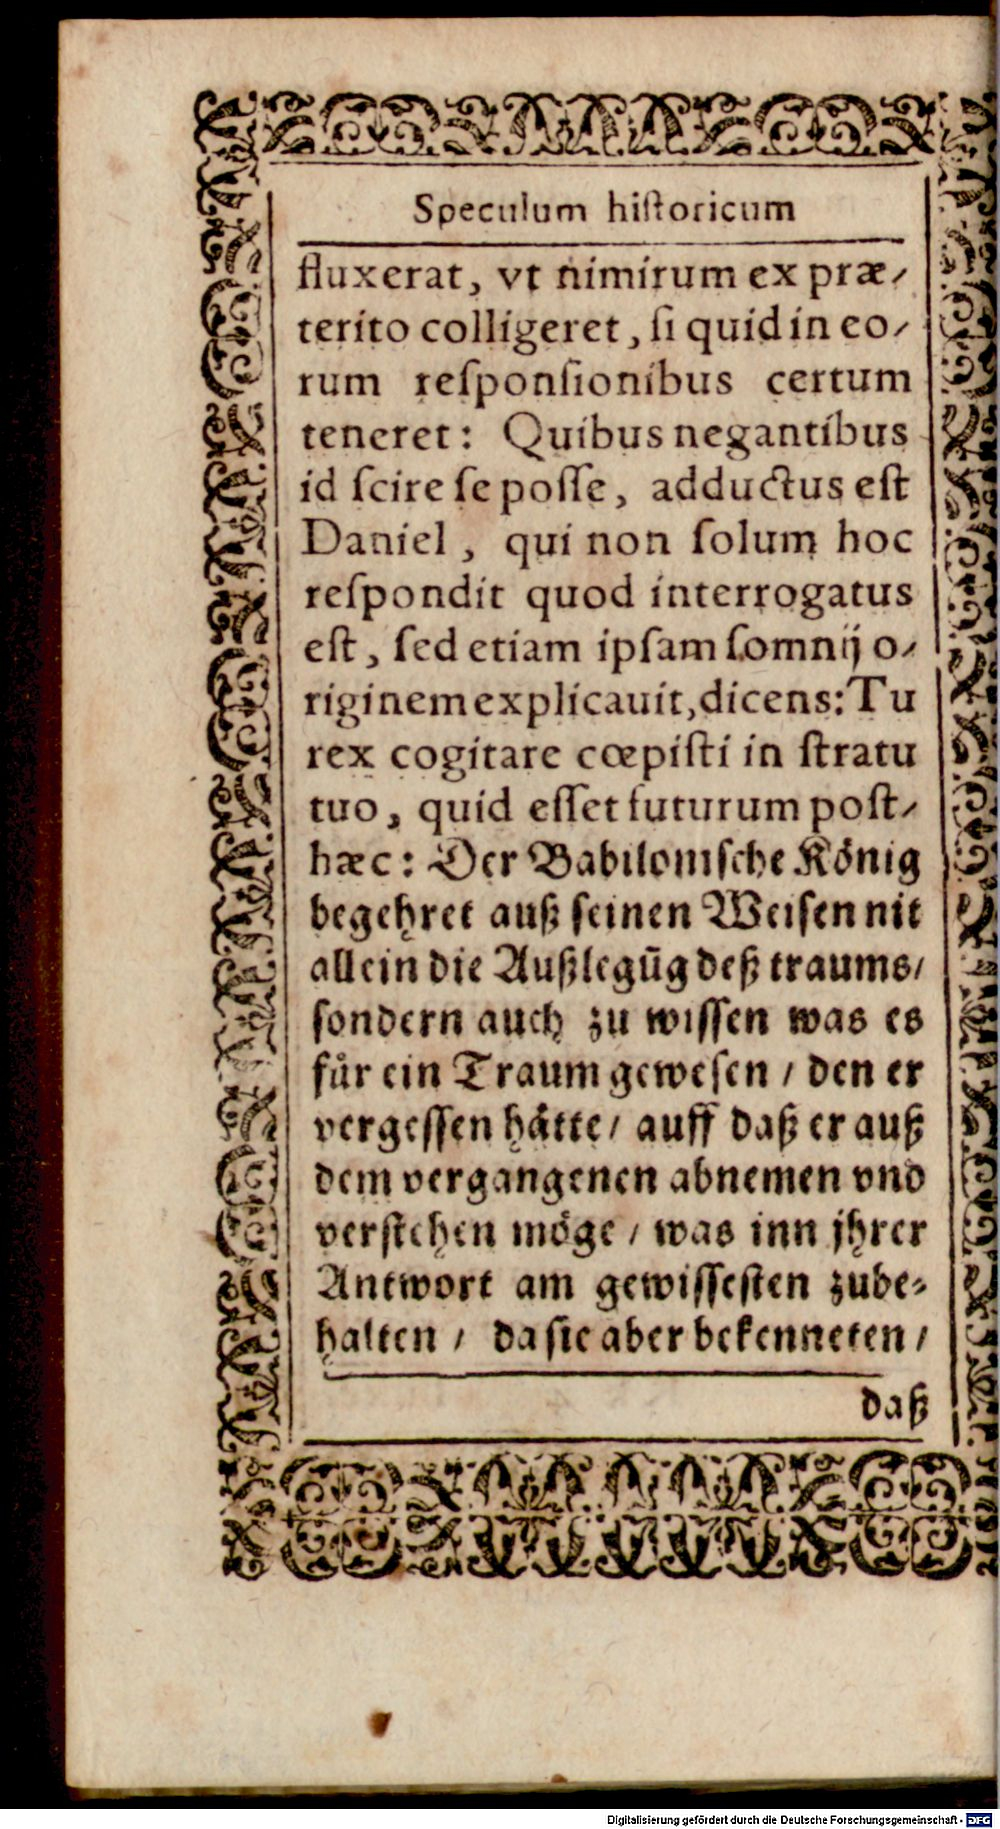 Speculum hiſtoricum
fluxerat, vt nimirum ex præ-
terito colligeret, ſi quid in eo-
rum reſponſionibus certum
teneret: Quibus negantibus
id ſcire ſe poſſe, adductus eſt
Daniel, qui non ſolum hoc
reſpondit quod interrogatus
eſt, ſed etiam ipſam ſomnij o-
riginem explicauit, dicens: Tu
rex cogitare cœpiſti in ſtratu
tuo, quid eſſet futurum poſt-
hæc: Der Babiloniſche Koͤnig
begehret auß ſeinen Weiſen nit
allein die Außlegūg deß traums/
ſondern auch zu wiſſen was es
fuͤr ein Traum geweſen / den er
vergeſſen haͤtte / auff daß er auß
dem vergangenen abnemen vnd
verſtehen moͤge / was inn jhrer
Antwort am gewiſſeſten zube-
halten / da ſie aber bekenneten /
daß
Digitalisierung gefördert durch die Deutsche Forschungsgemeinschaft - DFG